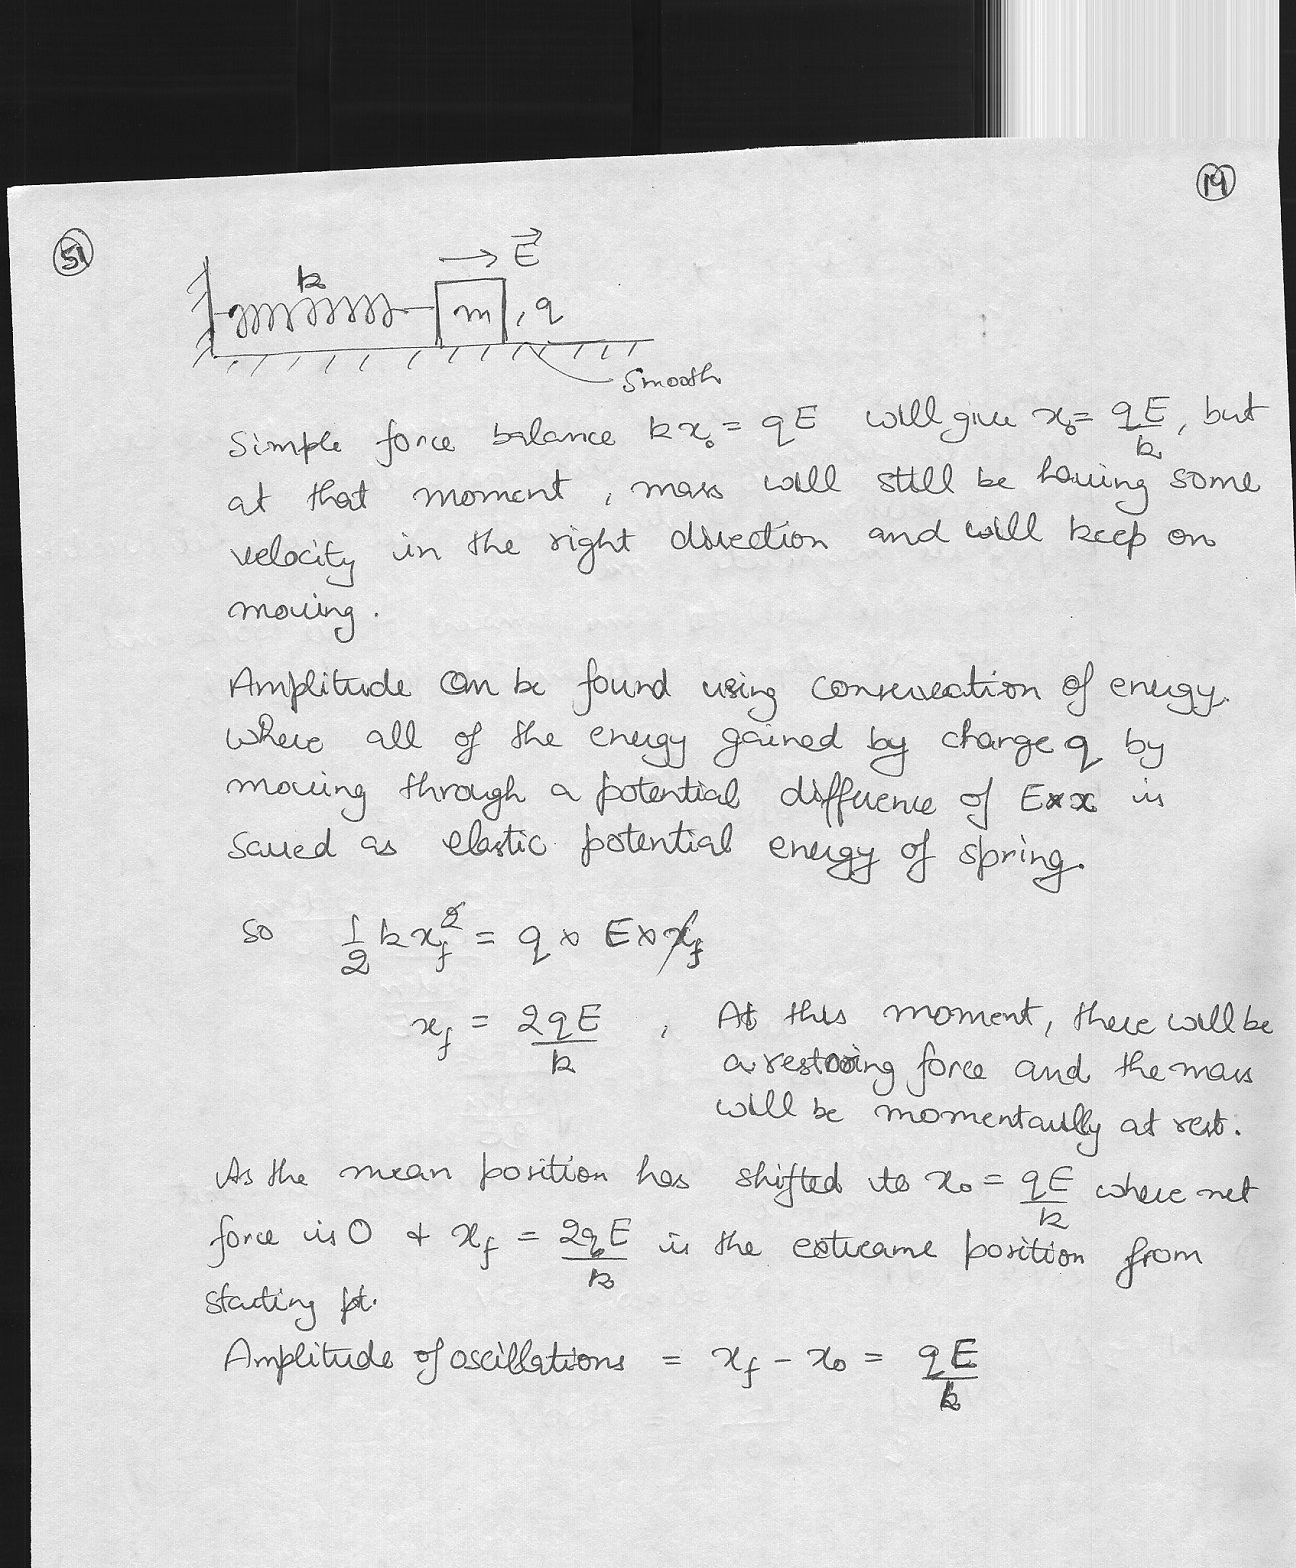 19
51
E
k
m , q
Smooth
Simple force balance kx₀ = qE will give x₀ = qE/k, but
at that moment, mass will still be having some
velocity in the right direction and will keep on
moving.
Amplitude can be found using conservation of energy.
where all of the energy gained by charge q by
moving through a potential difference of E×x is
saved as elastic potential energy of spring.
So 1/2 kx_f² = q × E × x_f
x_f = 2qE/k , At this moment, there will be
a restoring force and the mass
will be momentarily at rest.
As the mean position has shifted to x₀ = qE/k where net
force is 0 & x_f = 2qE/k is the extreame position from
starting pt.
Amplitude of oscillations = x_f - x₀ = qE/k